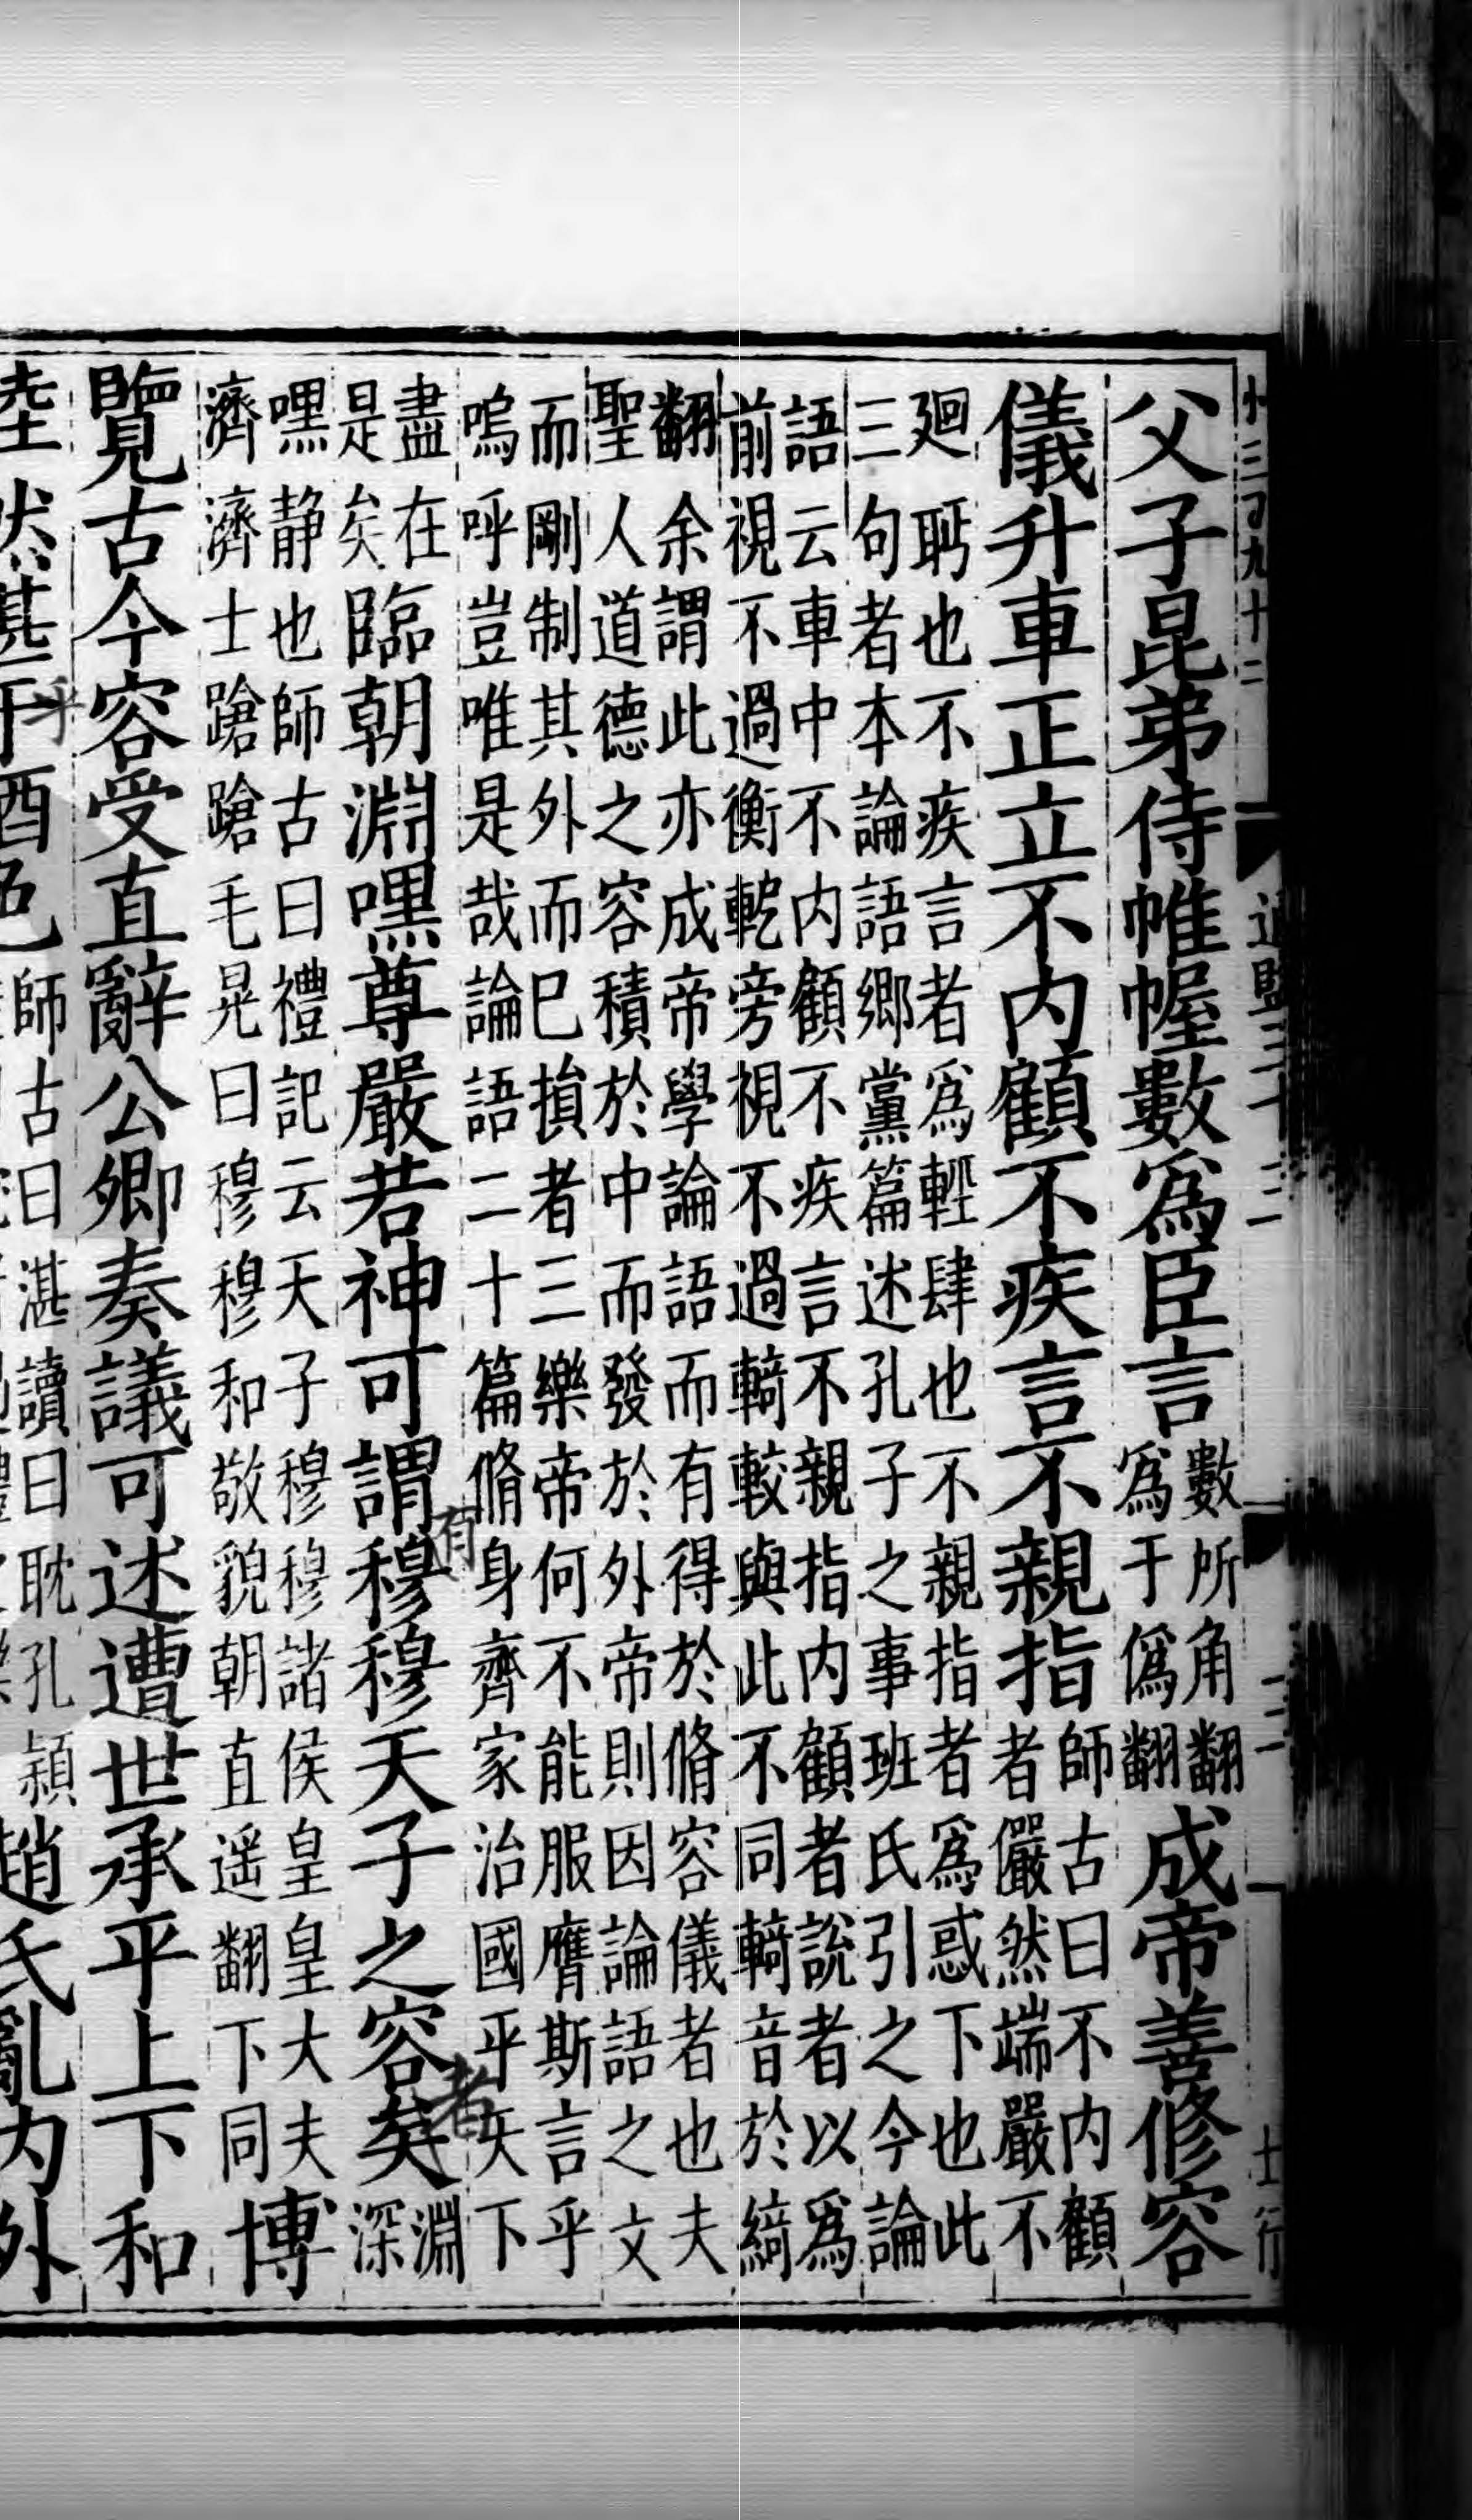 父子昆弟侍帷幄數爲臣言數所角翻爲于僞翻成帝善修容
儀升車正立不内顧不疾言不親指師古曰不内顧者儼然端嚴不
廻眄也不疾言者爲輕肆也不親指者爲惑下也此三句者本論語鄉黨篇述孔子之事班氏引之今論
語云車中不内顧不疾言不親指内顧者說者以爲前視不過衡軛旁視不過輢較與此不同輢音於綺
翻余謂此亦成帝學論語而有得於脩容儀者也夫聖人道德之容積於中而發於外帝則因論語之文
而剛制其外而已損者三樂帝何不能服膺斯言乎嗚呼豈唯是哉論語二十篇脩身齊家治國平天下
盡在是矣臨朝淵嘿尊嚴若神可謂穆穆天子之容矣淵深
嘿静也師古曰禮記云天子穆穆諸侯皇皇大夫濟濟士蹌蹌毛晃曰穆穆和敬貌朝直遥翻下同博
覽古今容受直辭公卿奏議可述遭世承平上下和
然甚于酒色師古曰湛讀曰耽孔穎趙氏亂内外
有
者
乎